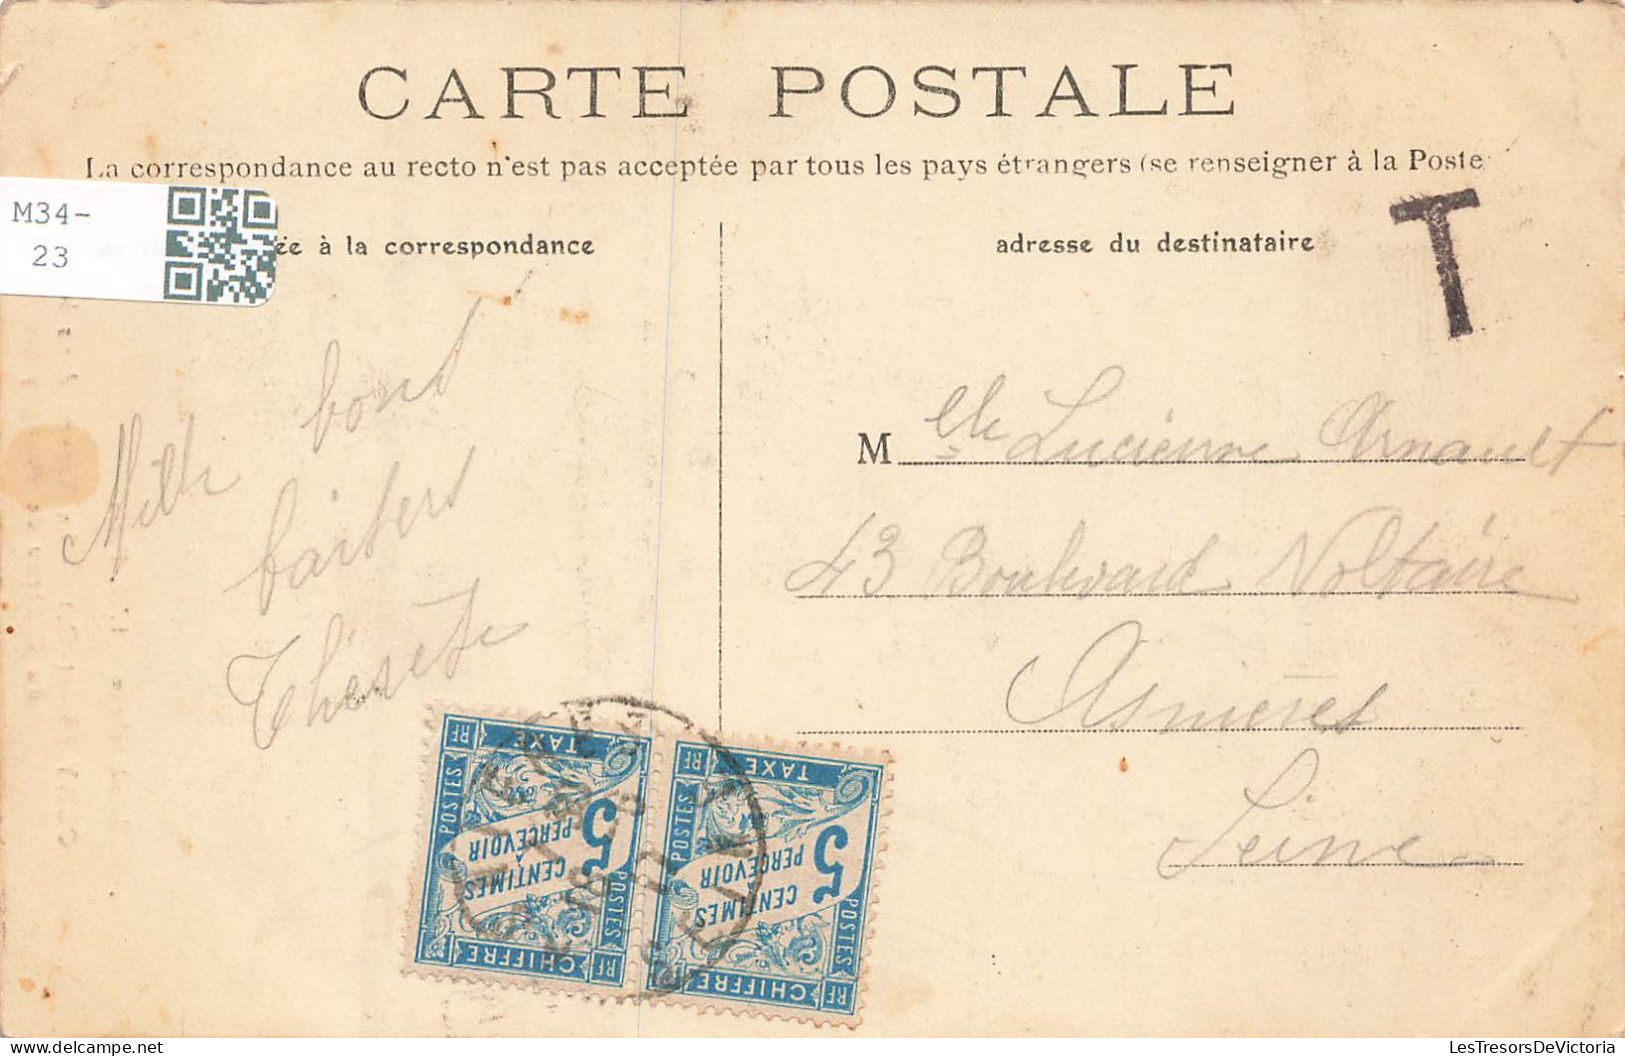 CARTE POSTALE
La correspondance au recto n'est pas acceptée par tous les pays étrangers (se renseigner à la Poste
M34-
23
ée à la correspondance
adresse du destinataire
T
Mille bons
baisers
Thérèse
Melle Lucienne Arnault
43 Boulevard Voltaire
Asnières
Seine
RF TAXE
POSTES
5
CENTIMES
À
PERCEVOIR
POSTES
CHIFFRE RF
RF TAXE
POSTES
5
CENTIMES
À
PERCEVOIR
POSTES
CHIFFRE RF
LesTresorsDeVictoria.com